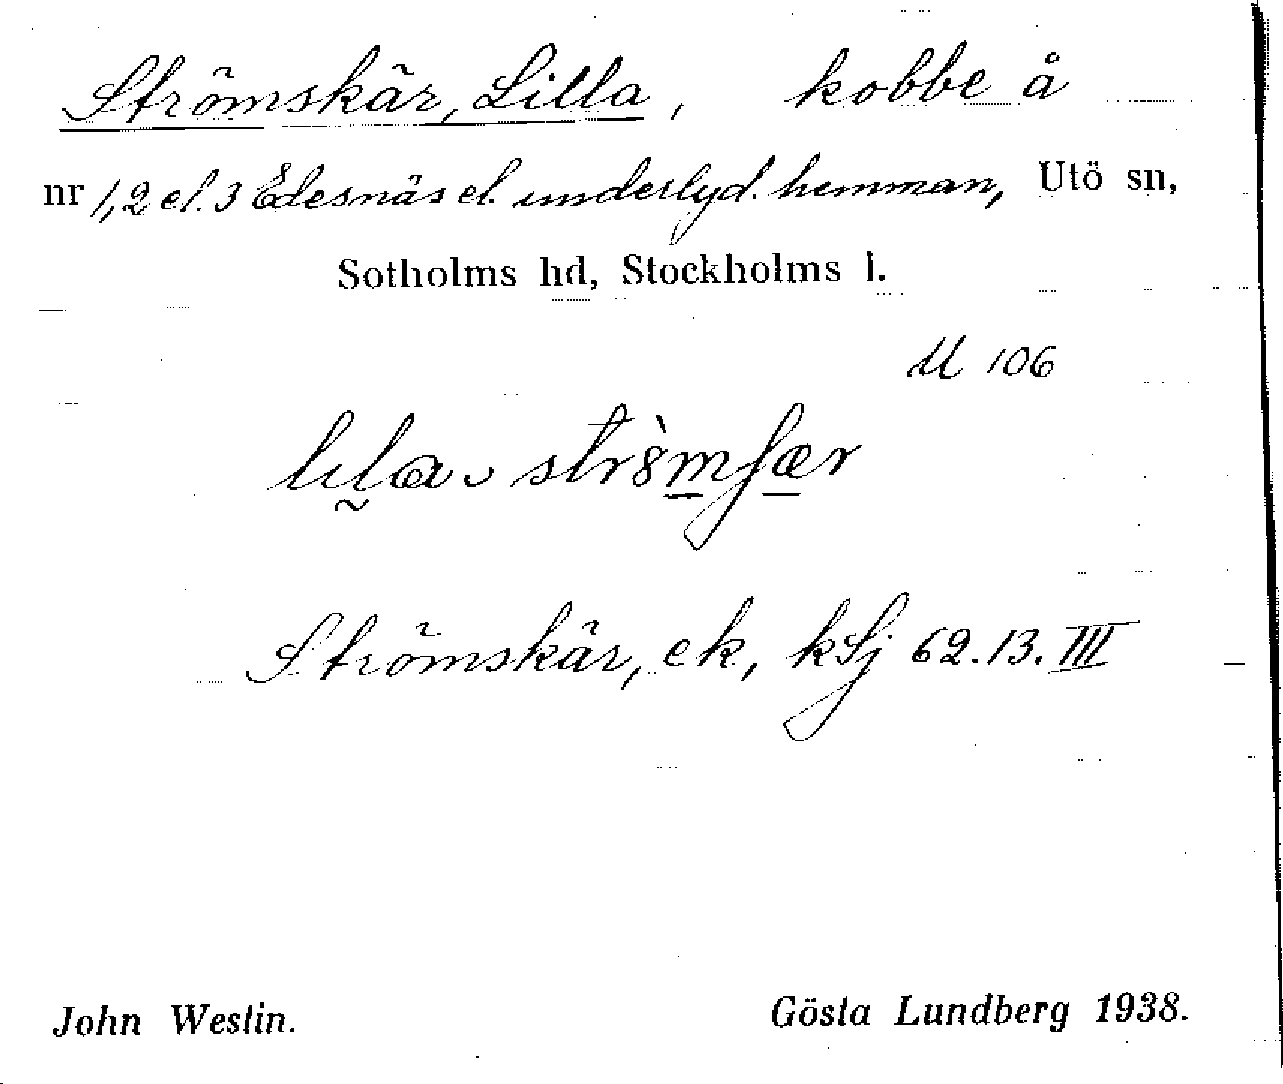 Strömskär, Lilla, kobbe å
nr 1,2 el. 3 Edesnäs el. underlyd. hemman, Utö sn,
Sotholms hd, Stockholms l.
M 106
Strömskär, ek, kSj 62.13.III
John Westin. Gösta Lundberg 1938.